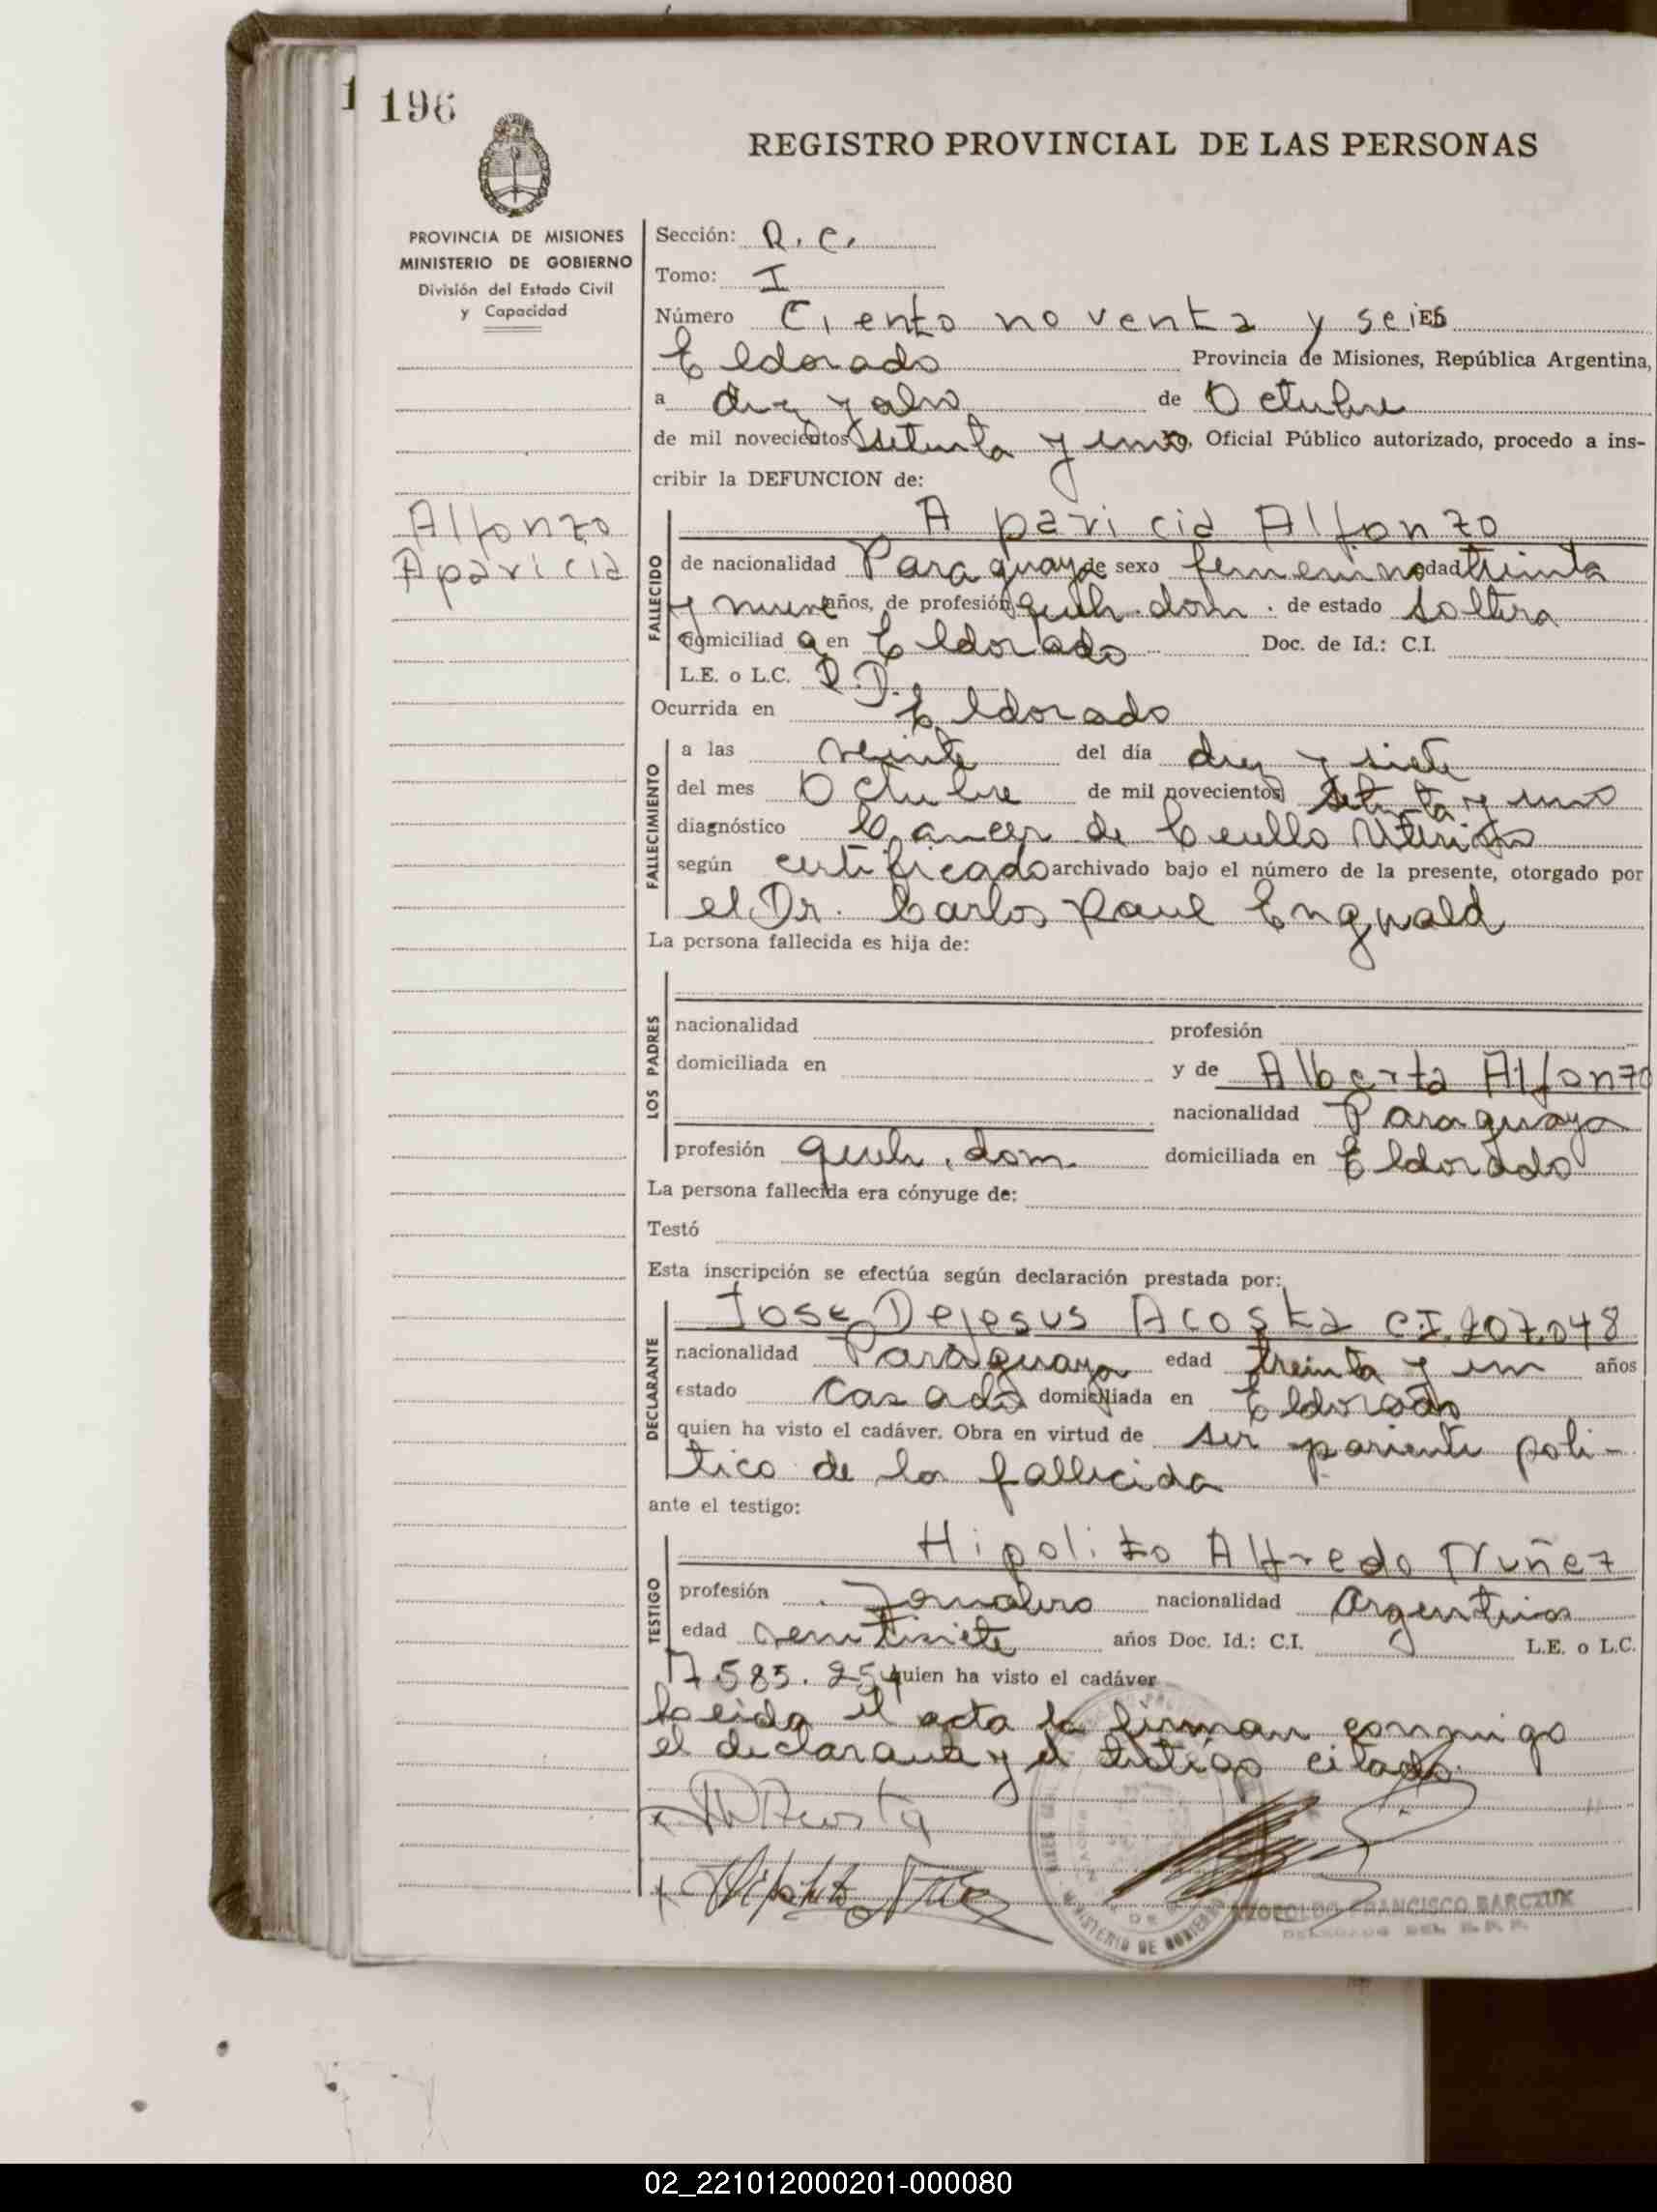 196
REGISTRO PROVINCIAL DE LAS PERSONAS
PROVINCIA DE MISIONES
MINISTERIO DE GOBIERNO
División del Estado Civil
y Capacidad
Sección: R.C.
Tomo: I
Número Ciento noventa y seis EN
Eldorado Provincia de Misiones, República Argentina,
a diez y ocho de Octubre
de mil novecientos setenta y uno yo, Oficial Público autorizado, procedo a ins-
cribir la DEFUNCION de:
Alfonzo
Aparicia
FALLECIDO
Aparicia Alfonzo
de nacionalidad Paraguaya de sexo femenino edad treinta
y nueve años, de profesión queh. dom. de estado soltera
domiciliada en Eldorado Doc. de Id.: C.I.
L.E. o L.C.
Ocurrida en Eldorado
FALLECIMIENTO
a las veinte del día diez y siete
del mes Octubre de mil novecientos setenta y uno
diagnóstico Cancer de Cuello Uterino
según certificado archivado bajo el número de la presente, otorgado por
el Dr. Carlos Raul Engwald
La persona fallecida es hija de:
LOS PADRES
nacionalidad profesión
domiciliada en y de Alberta Alfonzo
nacionalidad Paraguaya
profesión queh. dom. domiciliada en Eldorado
La persona fallecida era cónyuge de:
Testó
Esta inscripción se efectúa según declaración prestada por:
DECLARANTE
Jose Dejesus Acosta C.I. 207.048
nacionalidad Paraguaya edad treinta y un años
estado casado domiciliada en Eldorado
quien ha visto el cadáver. Obra en virtud de ser pariente poli-
tico de la fallecida
ante el testigo:
TESTIGO
Hipolito Alfredo Nuñez
profesión Jornalero nacionalidad Argentina
edad veintisiete años Doc. Id.: C.I. L.E. o L.C.
7.585.254 quien ha visto el cadáver
Leida el acta la firman conmigo
el declarante y el testigo citado.
Acosta
Hipolito
MINISTERIO DE GOBIERNO
FRANCISCO BARCZUK
02_221012000201-000080